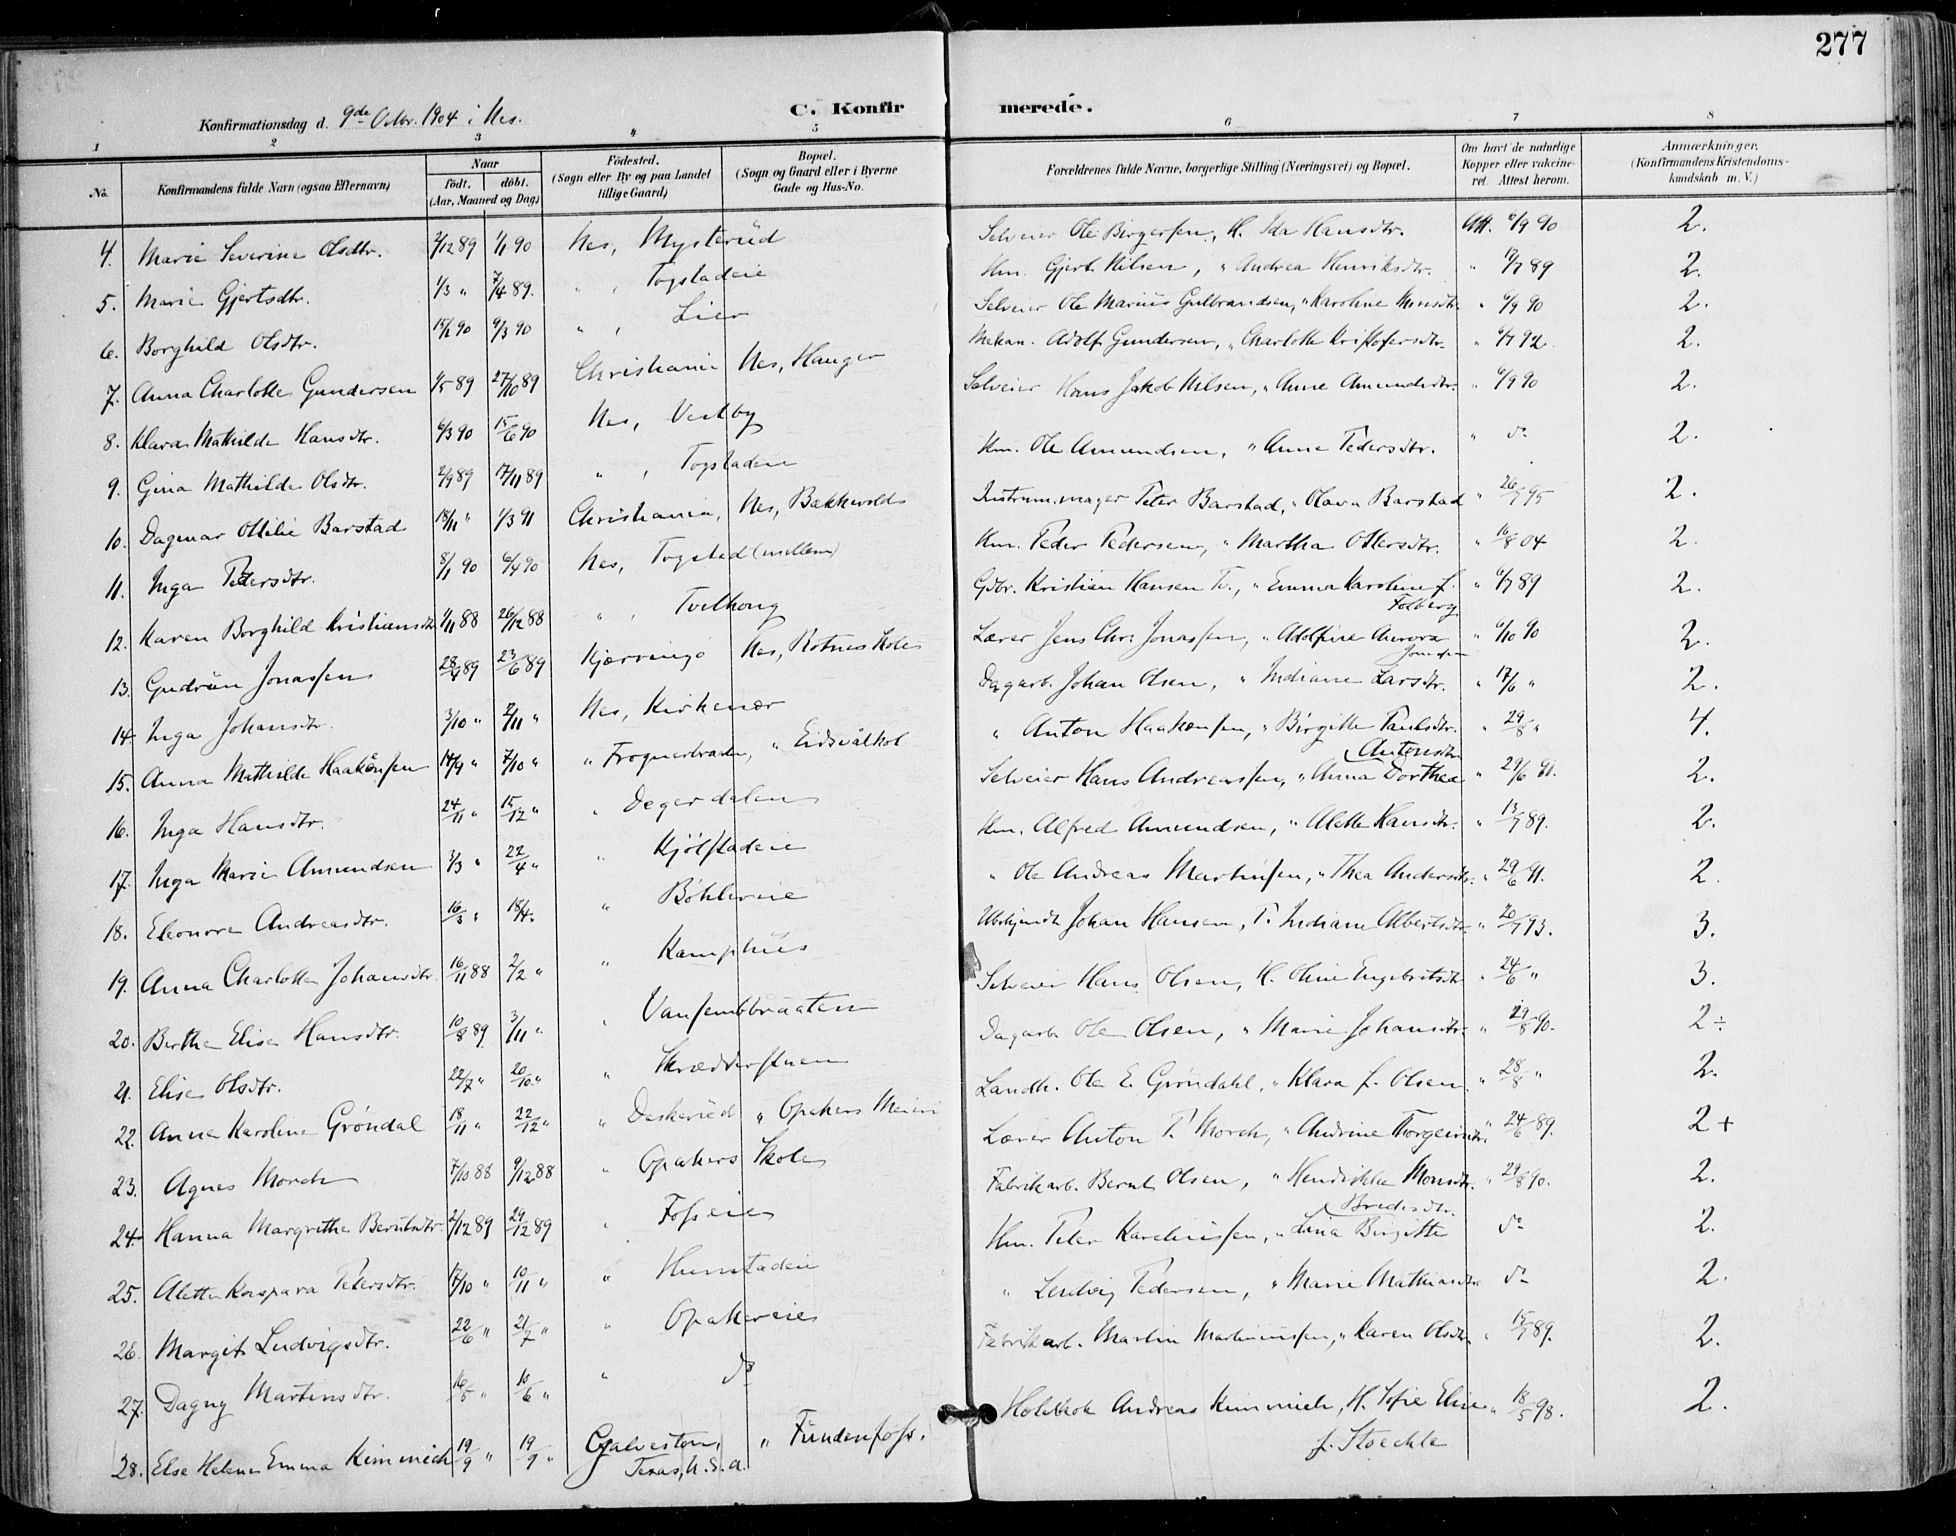 277
C. Konfirmerede.
Konfirmationsdag d. 9de Octbr. 1904 i Nes.
1 2 3 4 5 6 7 8
No. Konfirmandens fulde Navn (ogsaa Efternavn) Naar født. døbt. (Aar, Maaned og Dag) Fødested. (Sogn eller By og paa Landet tillige Gaard) Bopæl. (Sogn og Gaard eller i Byerne Gade og Hus-No. Forældrenes fulde Navne, borgerlige Stilling (Næringsvei) og Bopæl. Om havt de naturlige Kopper eller vaccineret. Attest herom. Anmærkninger. (Konfirmandens Kristendomskundskab m. V.)
4. Marie Severine Olsdtr. 2/12 89 1/1 90 Nes, Mysterud Selveier Ole Birgersen, H. Ida Hansdtr. Att. 6/9 90 2.
5. Marie Gjertsdtr. 1/3 " 7/4 89. " , Togstadeie Hm. Gjert Nilsen, " Andrea Henriksdtr. " 17/7 89 2.
6. Borghild Olsdtr. 15/1 90 9/3 90 " , Lier Selveier Ole Marius Gulbrandsen, " Karoline Monsdtr. " 6/9 90 2.
7. Anna Charlotte Gundersen 1/5 89 27/10 89 Christiania Nes, Hauger Mekan. Adolf Gundersen, " Charlotte Kristofersdtr. " 6/7 92 2.
8. Klara Mathilde Hansdtr. 6/3 90 15/6 90 Nes, Vestby Selveier Hans Jakob Nilsen, " Anne Amundsdtr. " 6/9 90 2.
9. Gina Mathilde Olsdtr. 2/9 89 17/11 89 " , Togstadeie Hm. Ole Amundsen, " Anne Pedersdtr. " do 2.
10. Dagmar Ottilie Barstad 18/11 " 1/3 91 Christiania, Nes, Bakkevolds Instrummager Peter Barstad, " Olava Barstad " 26/7 95 2.
11. Inga Pedersdtr. 8/1 90 6/4 90 Nes, Togstad (mellem) Hm. Peder Pedersen, " Martha Ottersdtr. " 16/8 04 2.
12. Karen Borghild Kristiansdtr. 1/11 88 26/12 88 " , Tvethoug Gdbr. Kristian Hansen T., " Emma Karoline f. Folberg " 6/7 89 2.
13. Gudrun Jonassen 28/4 89 23/6 89 Kjærringø Nes, Rotnes Skole Lærer Jens Chr. Jonassen, " Adolfine Aurora Jonassen " 6/10 90 2.
14. Inga Johansdtr. 3/10 " 2/11 " Nes, Kirkenær Dagarb. Johan Olsen, " Indiane Larsdtr. " 17/6 " 2.
15. Anna Mathilde Haakonsen 14/9 " 7/10 " " Frognerbraaten, " Eidsvålkol " Anton Haakonsen, " Birgitte Paulsdtr. " 29/8 " 4.
16. Inga Hansdtr. 24/11 " 15/12 " " Degerdalen Selveier Hans Andreassen, " Anna Dorthea Antonsdtr. " 29/6 91. 2.
17. Inga Marie Amundsen 3/3 " 22/4 " " Kjølstadeie Hm. Alfred Amundsen, " Alette Hansdtr. " 13/7 89. 2.
18. Eleonora Andreasdtr. 16/3 " 18/4 " " Bøhlereie " Ole Andreas Martinsen, " Thea Andersdtr. " 29/6 91. 2.
19. Anna Charlotte Johansdtr. 16/11 88 2/2 " " Kamphus Johan Hansen, T. Indiane Albertsdtr. " 20/7 93. 3.
20. Berthe Elise Hansdtr. 10/8 89 3/11 " " Selveier Hans Olsen, H. Oline Engebretsdtr. " 24/6 " 3.
21. Elise Olsdtr. 22/7 " 20/10 " " Skrædderstuen Dagarb Ole Olsen, " Marie Johansdtr. " 29/8 90. 2 ÷
22. Anna Karoline Grøndal 18/11 " 22/12 " " Daskerud " Opakers Meieri Landh. Ole E. Grøndahl, " Klara f. Olsen. " 28/8 " 2.
23. Agnes Morch 7/10 88 9/12 88 " Opakers Skole Lærer Anton T. Morch, " Andrine Thorgeirsdtr. " 24/6 89. 2 +
24. Hanna Margrethe Berntsdtr. 2/12 89 29/12 89 " Fosseie Fabrikarb. Bernt Olsen, " Hendrikke Monsdtr. " 29/8 90. 2.
25. Alette Kaspara Petersdtr. 17/10 " 10/11 " " Hunstadeie Hm. Peter Kareliussen, " Lina Birgitte Bredesdtr. do 2.
26. Margit Ludvigsdtr. 22/6 " 21/7 " " Opakereie " Ludvig Pedersen, " Marie Mathiasdtr. do 2.
27. Dagny Martinsdtr. 16/5 " 10/6 " " do Fabrikarb. Martin Martiniussen, " Karen Olsdtr. " 15/7 89. 2.
28. Else Helene Emma Kimmich 19/9 " 19/9 " Galveston, Texas, U.S.A. " Fundenfoss. Andreas Kimmich, H. Sofie Elise f. Stoechle " 18/5 98. 2.